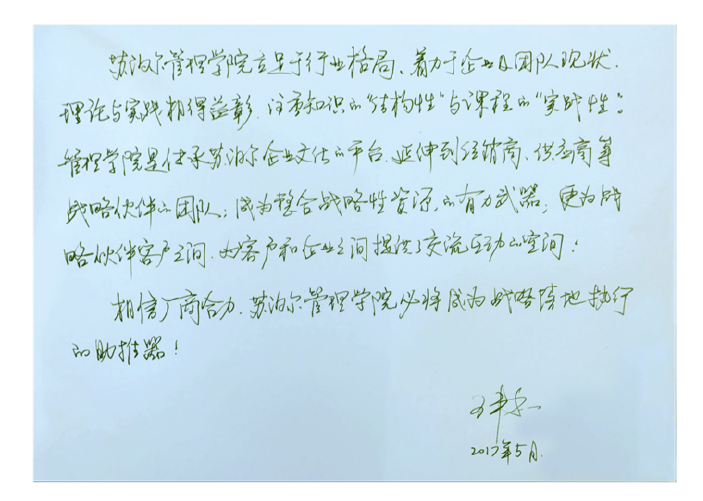 苏泊尔管理学院立足于行业格局、着力于企业及团队现状.
理论与实践相得益彰.注重知识的“结构性”与课程的“实践性”;
管理学院是传承苏泊尔企业文化的平台.延伸到经销商、供应商等
战略伙伴的团队;成为整合战略性资源的有力武器;更为战
略伙伴客户之间.为客户和企业之间提供了交流互动的空间!
相信厂商合力.苏泊尔管理学院必将成为战略落地执行
的助推器!
2017年5月.